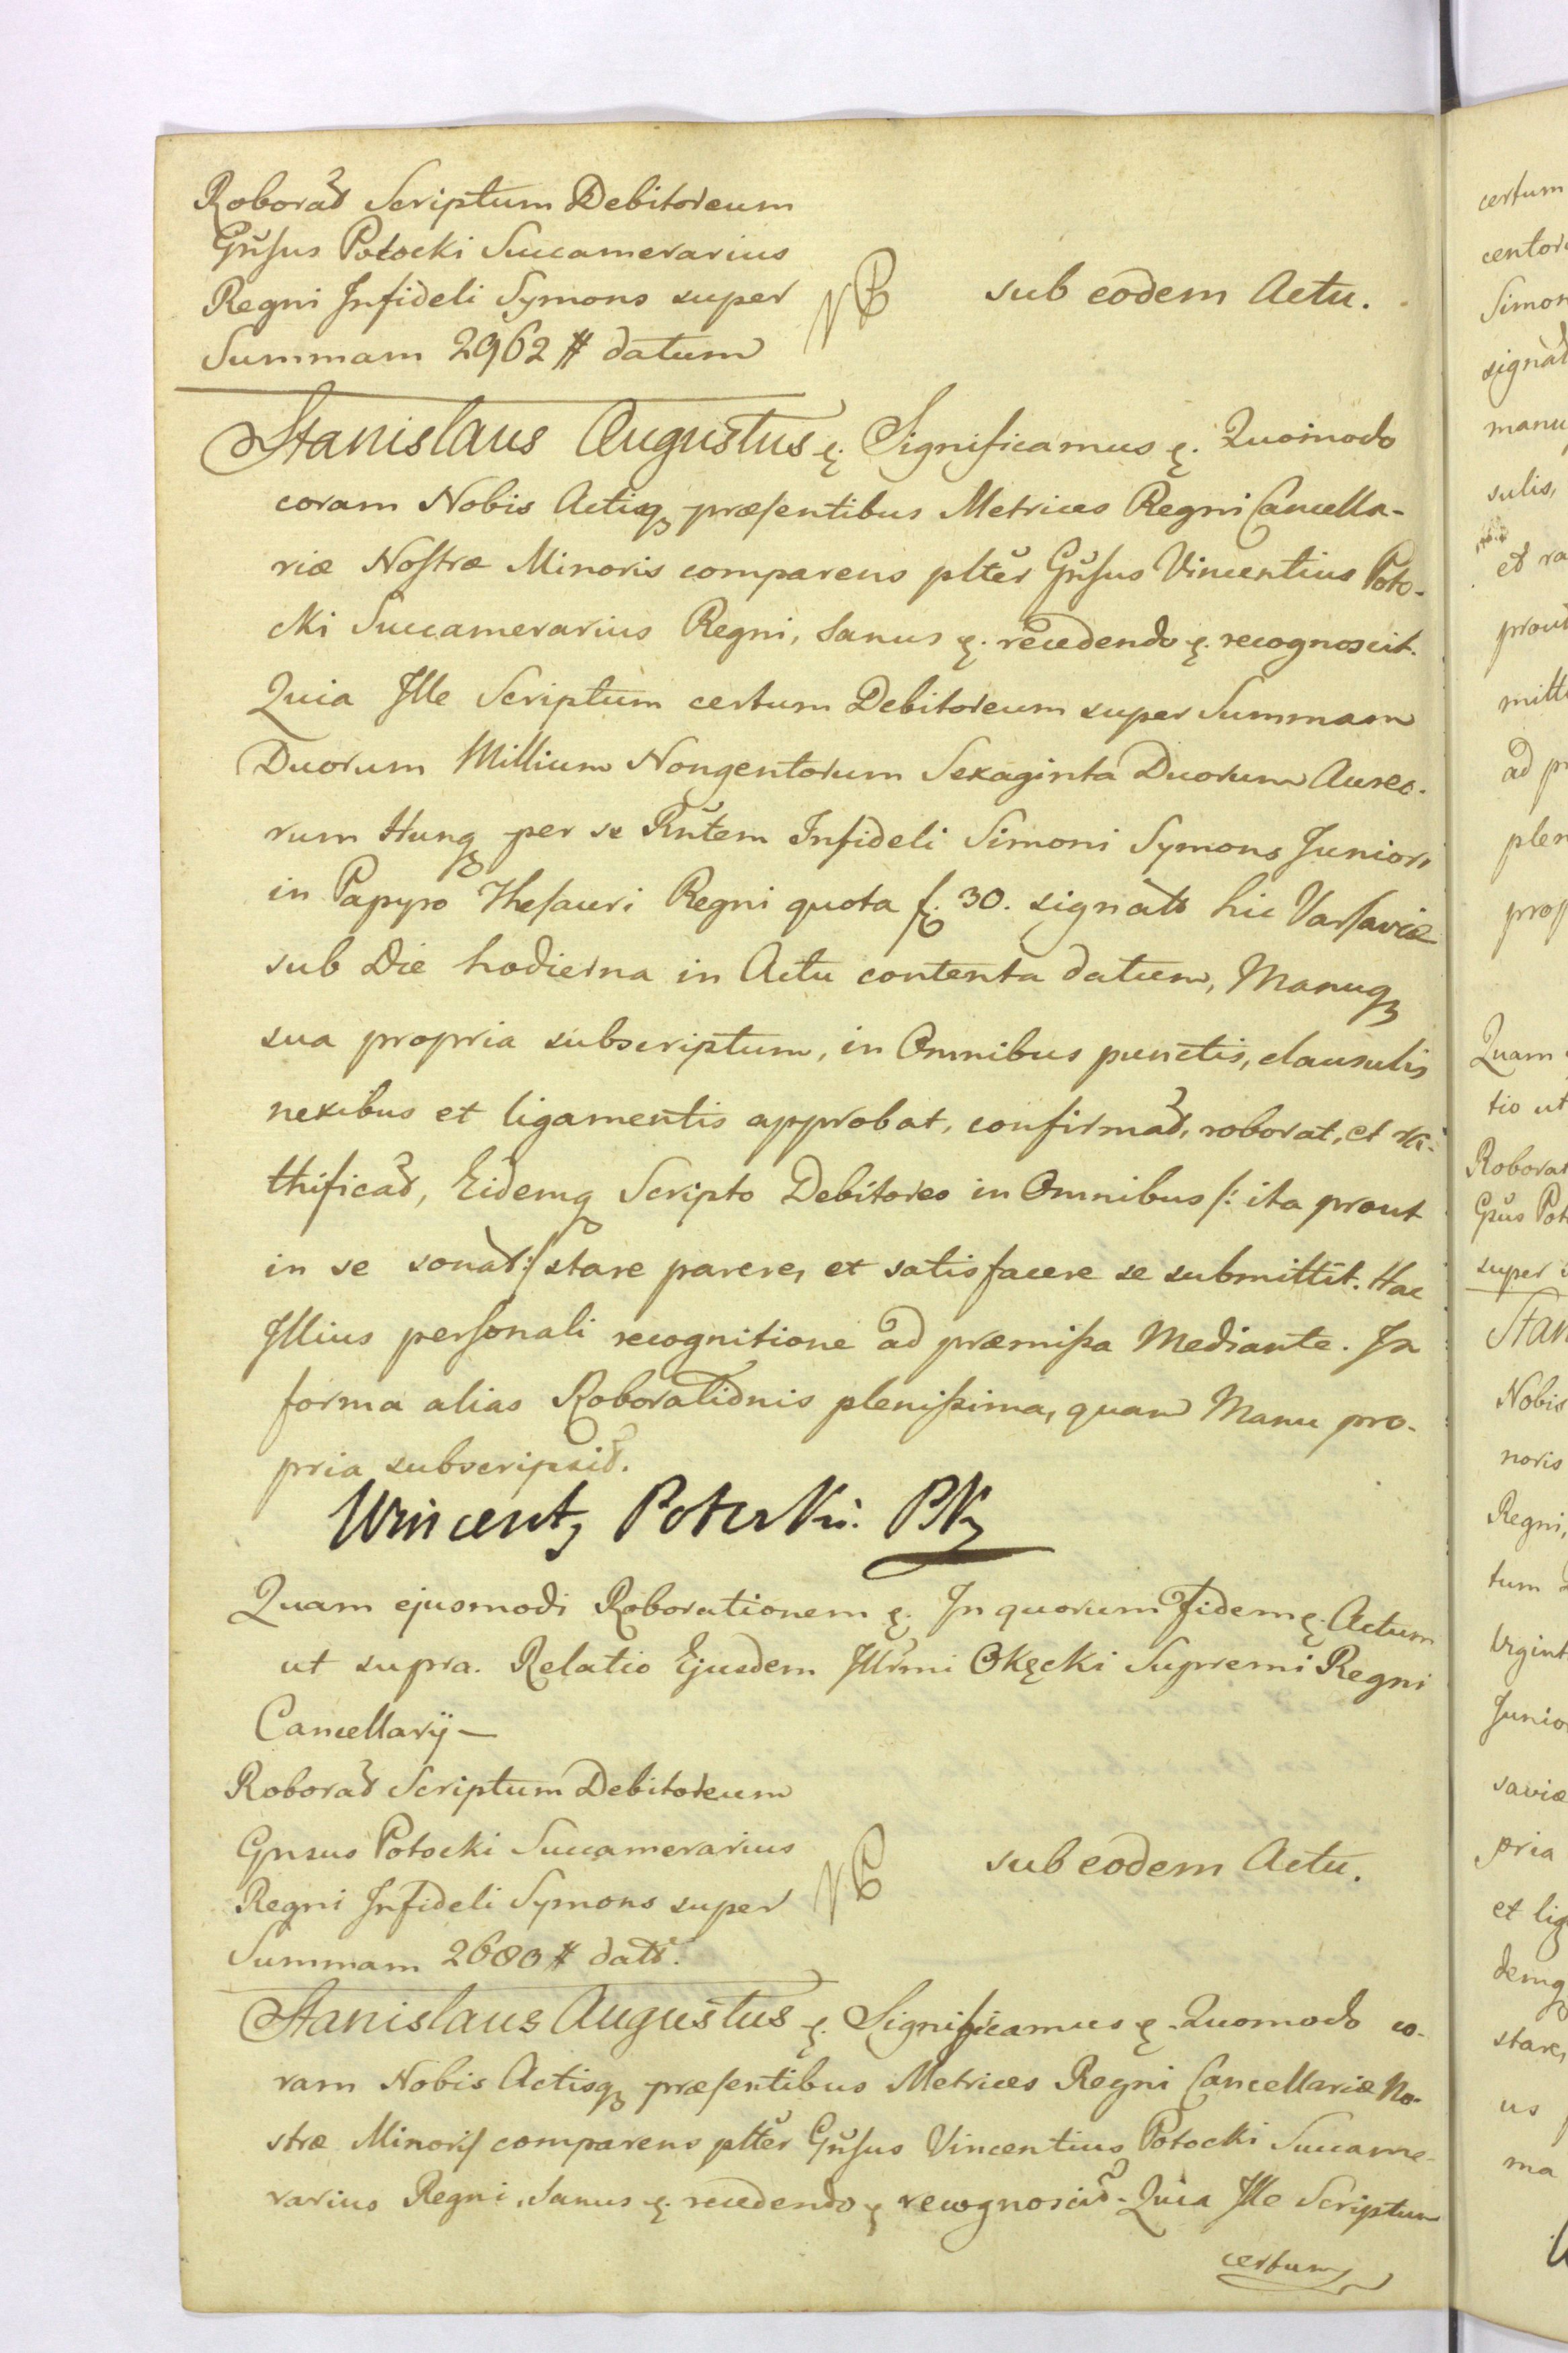 Roborat Scriptum Debitoreum
Gnsus Potocki Succamerarius
Regni Infideli Symons super
Summam 2962 # datum
NB
sub eodem Actu.
Stanislaus Augustus ę. Significamus ę. Quomodo
coram Nobis Actisq præsentibus Metrices Regni Cancella-
riæ Nostræ Minoris comparens plter Gnsus Vincentius Poto-
cki Succamerarius Regni, Sanus ę. recedendo ę. recognoscit.
Quia Ille Scriptum certum Debitoreum super Summam
Duorum Millium Nongentorum Sexaginta Duorum Aureo-
rum Hung per se Rntem Infideli Simoni Symons Juniori
in Papyro Thesauri Regni quota f. 30. signat hic Varsaviæ
sub Die hodierna in Actu contenta datum, Manuq
sua propria subscriptum, in Omnibus punctis, clausulis
nexibus et ligamentis approbat, confirmat, roborat, et ra-
thificat, Eidemq Scripto Debitoreo in Omnibus /: ita prout
in se sonat :/ stare parere, et satisfacere se submittit. Hac
Illius personali recognitione ad præmissa Mediante. In
forma alias Roborationis plenissima, quam Manu pro-
pria subscripsit.
Wincenty Potocki PK
Quam ejusmodi Roborationem ę. In quorum Fidem ę. Actum
ut supra. Relatio Ejusdem Illrmi Okęcki Supremi Regni
Cancellarij —
Roborat Scriptum Debitoreum
Gnsus Potocki Succamerarius
Regni Infideli Symons super
Summam 2680 # datt.
NB
sub eodem Actu.
Stanislaus Augustus ę. Significamus ę. Quomodo co-
ram Nobis Actisq præsentibus Metrices Regni Cancellariæ No-
stræ Minoris comparens plter Gnsus Vincentius Potocki Succame-
rarius Regni, Sanus ę. recedendo ę recognoscit. Quia Ille Scriptum
certum
certum
Simon
signat
manu
sulis,
et ra
prout
mitt
ad pr
plen
prop
Quam
tio ut
Roborat
Gnus Pot
super
Stan
Nobis
noris
Regni,
tum
Vigint
Junio
saviæ
pria
et lig
demq
stare,
us
ma